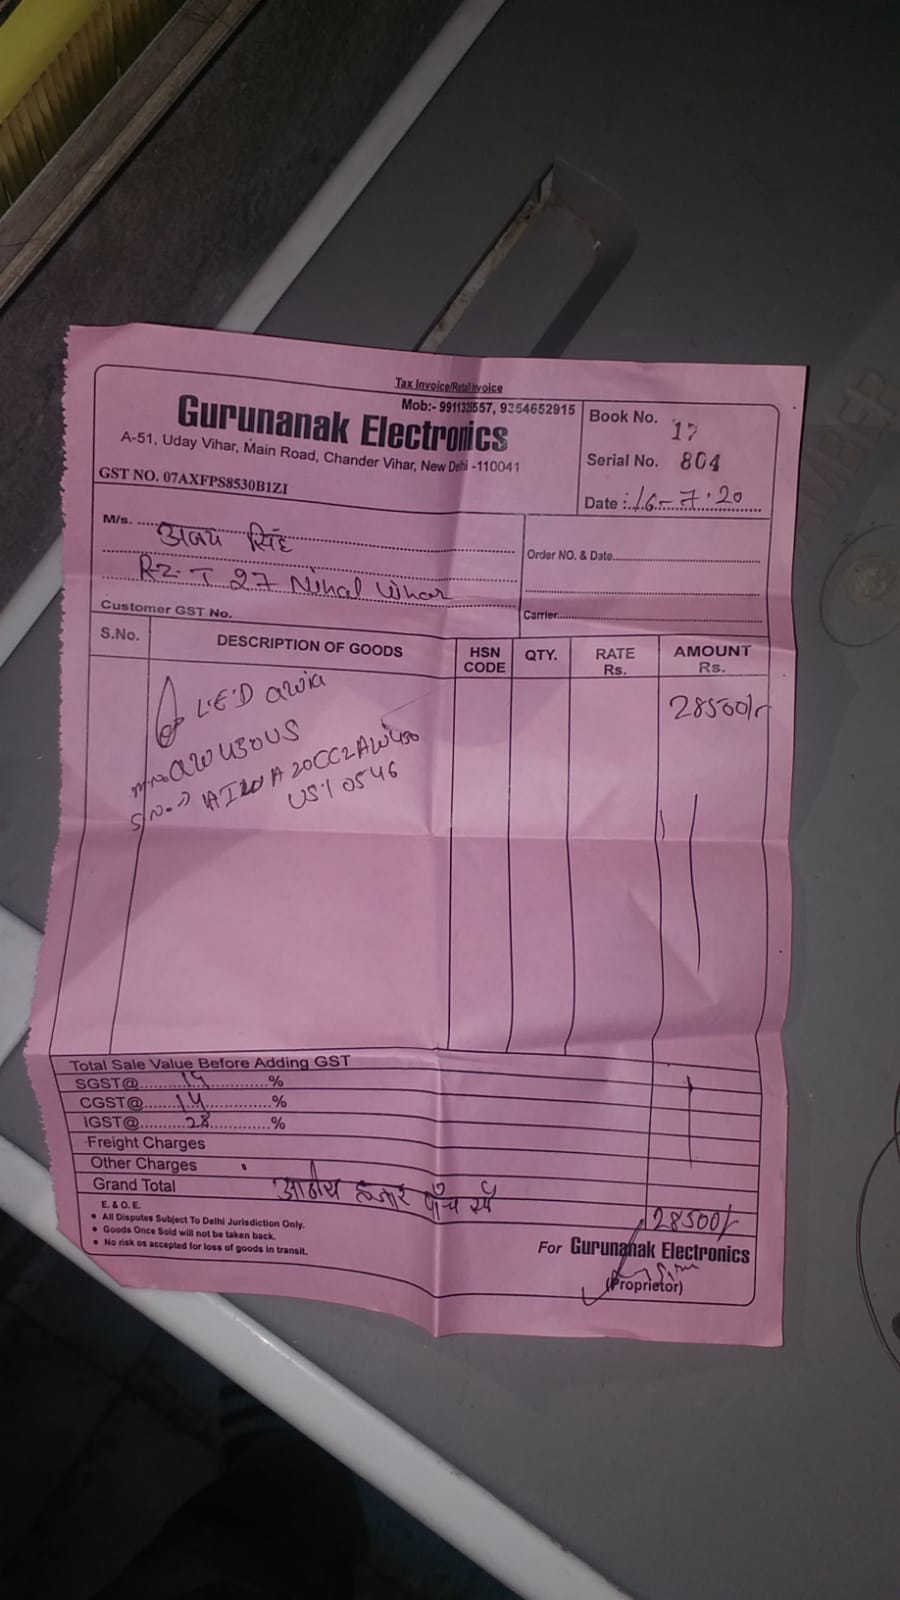 Tax Invoice/Retail Invoice
Mob:- 9911326557, 9354652915
Gurunanak Electronics
A-51, Uday Vihar, Main Road, Chander Vihar, New Delhi -110041
GST NO. 07AXFPS8530B1ZI
Book No. 17
Serial No. 804
Date : 16-7-20
M/s. अजय सिंह
RZ-T 27 Nihal Vihar
Customer GST No.
Order NO. & Date
Carrier
S.No. DESCRIPTION OF GOODS HSN CODE QTY. RATE Rs. AMOUNT Rs.
L.E.D 28500/-
AW430US
S/No.
US10546
Total Sale Value Before Adding GST
SGST@ 14 %
CGST@ 14 %
IGST@ 28 %
Freight Charges
Other Charges
Grand Total 28500/-
E. & O. E.
• All Disputes Subject To Delhi Jurisdiction Only.
• Goods Once Sold will not be taken back.
• No risk os accepted for loss of goods in transit.
For Gurunanak Electronics
(Proprietor)